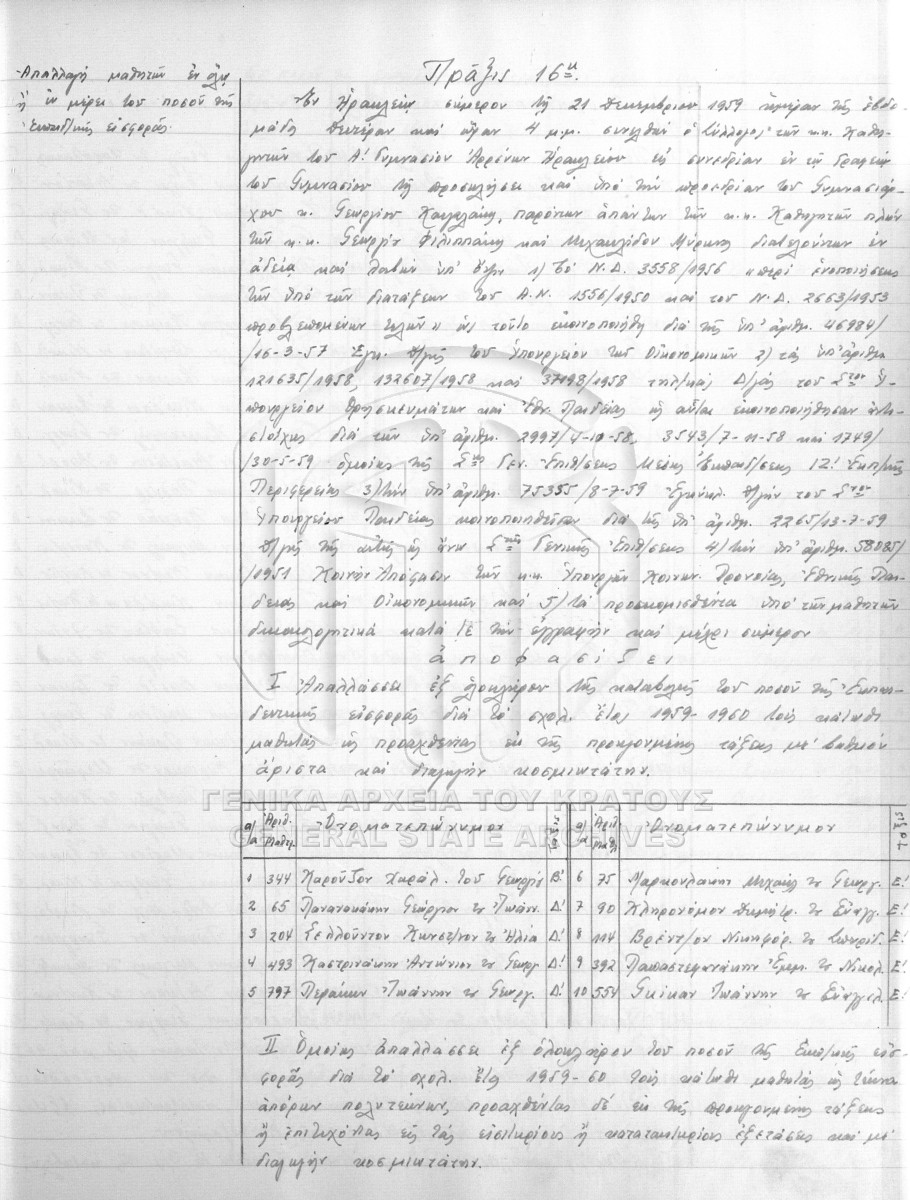 Πρᾶξις 16η.
Ἀπαλλαγή μαθητῶν ἐν ὅλῳ
ἤ ἐν μέρει τοῦ ποσοῦ τῆς
Ἐκπαιδ/κῆς εἰσφορᾶς.
Ἐν Ἡρακλείῳ σήμερον τῇ 21 Δεκεμβρίου 1959 ἡμέραν τῆς ἑβδο-
μάδος Δευτέραν καί ὥραν 4 μ.μ. συνελθών ὁ Σύλλογος τῶν κ.κ. Καθη-
γητῶν τοῦ Α! Γυμνασίου Ἀρρένων Ἡρακλείου εἰς συνεδρίαν ἐν τῷ Γραφείῳ
τοῦ Γυμνασίου τῇ προσκλήσει καί ὑπό τήν προεδρίαν τοῦ Γυμνασιάρ-
χου κ. Γεωργίου παρόντων ἁπάντων τῶν κ.κ. Καθηγητῶν πλήν
τῶν κ.κ. Γεωργίου Φιλιππάκη καί Μιχαηλίδου Μύρωνος διατελούντων ἐν
ἀδείᾳ καί λαβών ὑπ' ὄψιν 1) Τό Ν.Δ. 3558/1956 «περί ἑνοποιήσεως
τῶν ὑπό τῶν διατάξεων τοῦ Α.Ν. 1556/1950 καί τοῦ Ν.Δ. 2663/1953
προβλεπομένων τελῶν» ὡς τοῦτο ἐκοινοποιήθη διά τῆς ὑπ' ἀριθμ. 46984/
/16-3-57 Ἐγκ. Δ/γῆς τοῦ Ὑπουργείου τῶν Οἰκονομικῶν 2) τάς ὑπ' ἀριθμ.
121635/1958, 132607/1958 καί 37198/1958 τηλ/κάς Δ/γάς τοῦ Στοῦ Ὑ-
πουργείου Θρησκευμάτων καί Ἐθν. Παιδείας ὡς αὗται ἐκοινοποιήθησαν ἀντι-
στοίχως διά τῶν ὑπ' ἀριθμ. 2997/4-10-58, 3543/7-11-58 καί 1749/
/30-5-59 ὁμοίας τῆς Στῆς Γεν. Ἐπιθ/σεως Μέσης Ἐκπαιδ/σεως 12! Ἐκπ/κῆς
Περιφερείας 3) τήν ὑπ' ἀριθμ. 75355/8-7-59 Ἐγκύκλ. Δ/γήν τοῦ Στοῦ
Ὑπουργείου Παιδείας κοινοποιηθεῖσαν διά τῆς ὑπ' ἀριθμ. 2265/13-7-59
Δ/γῆς τῆς αὐτῆς ὡς ἄνω Στῆς Γενικῆς Ἐπιθ/σεως 4) τήν ὑπ' ἀριθμ. 58085/
/1951 Κοινήν Ἀπόφασιν τῶν κ.κ. Ὑπουργῶν Κοινων. Προνοίας, Ἐθνικῆς Παι-
δείας καί Οἰκονομικῶν καί 5) τά προσκομισθέντα ὑπό τῶν μαθητῶν
δικαιολογητικά κατά τε τήν ἐγγραφήν καί μέχρι σήμερον
ἀποφασίζει
I Ἀπαλλάσσει ἐξ ὁλοκλήρου τῆς καταβολῆς τοῦ ποσοῦ τῆς Ἐκπαι-
δευτικῆς εἰσφορᾶς διά τό σχολ. ἔτος 1959-1960 τούς κάτωθι
μαθητάς ὡς προαχθέντας ἐκ τῆς προηγουμένης τάξεως μέ βαθμόν
ἄριστα καί διαγωγήν κοσμιωτάτην.
ΓΕΝΙΚΑ ΑΡΧΕΙΑ ΤΟΥ ΚΡΑΤΟΥΣ
GENERAL STATE ARCHIVES
α/α Ἀριθ. Μαθητ. Ὀνοματεπώνυμον Τάξις α/α Ἀριθ. Μαθ. Ὀνοματεπώνυμον Τάξις
1 344 Καρούζου Χαράλ. τοῦ Γεωργίου Β! 6 75 Μαρκουλάκης Μιχαήλ τοῦ Γεωργ. Ε!
2 65 Παναγάκην Γεώργιον τοῦ Ἰωάνν. Δ! 7 90 Κληρονόμον Δημήτρ. τοῦ Εὐαγγ. Ε!
3 204 Κωνστ/νον τοῦ Ἠλία Δ! 8 114 Βρέντζον Νικηφόρ. τοῦ Σπυρίδ. Ε!
4 493 Καστρινάκην Ἀντώνιον τοῦ Γεωργ. Δ! 9 392 Παπαστεφανάκην τοῦ Νικολ. Ε!
5 797 Περάκην Ἰωάννην τοῦ Γεωργ. Δ! 10 554 Γκίκαν Ἰωάννην τοῦ Εὐαγγελ. Ε!
II Ὁμοίως ἀπαλλάσσει ἐξ ὁλοκλήρου τοῦ ποσοῦ τῆς Ἐκπ/κῆς εἰσ-
φορᾶς διά τό σχολ. ἔτος 1959-60 τούς κάτωθι μαθητάς ὡς τέκνα
ἀπόρων πολυτέκνων, προαχθέντας δέ ἐκ τῆς προηγουμένης τάξεως
ἤ ἐπιτυχόντας εἰς τάς εἰσιτηρίους ἤ κατατακτηρίους ἐξετάσεις καί μέ
διαγωγήν κοσμιωτάτην.